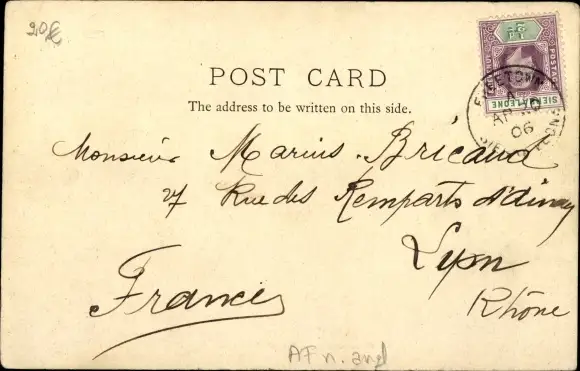 POST CARD
The address to be written on this side.
½d
POSTAGE
SIERRA LEONE
FREETOWN
A
AP 10
06
SIERRA LEONE
Monsieur Marius Bricaud
27 Rue des Remparts d'ainay
Lyon
France
Rhône